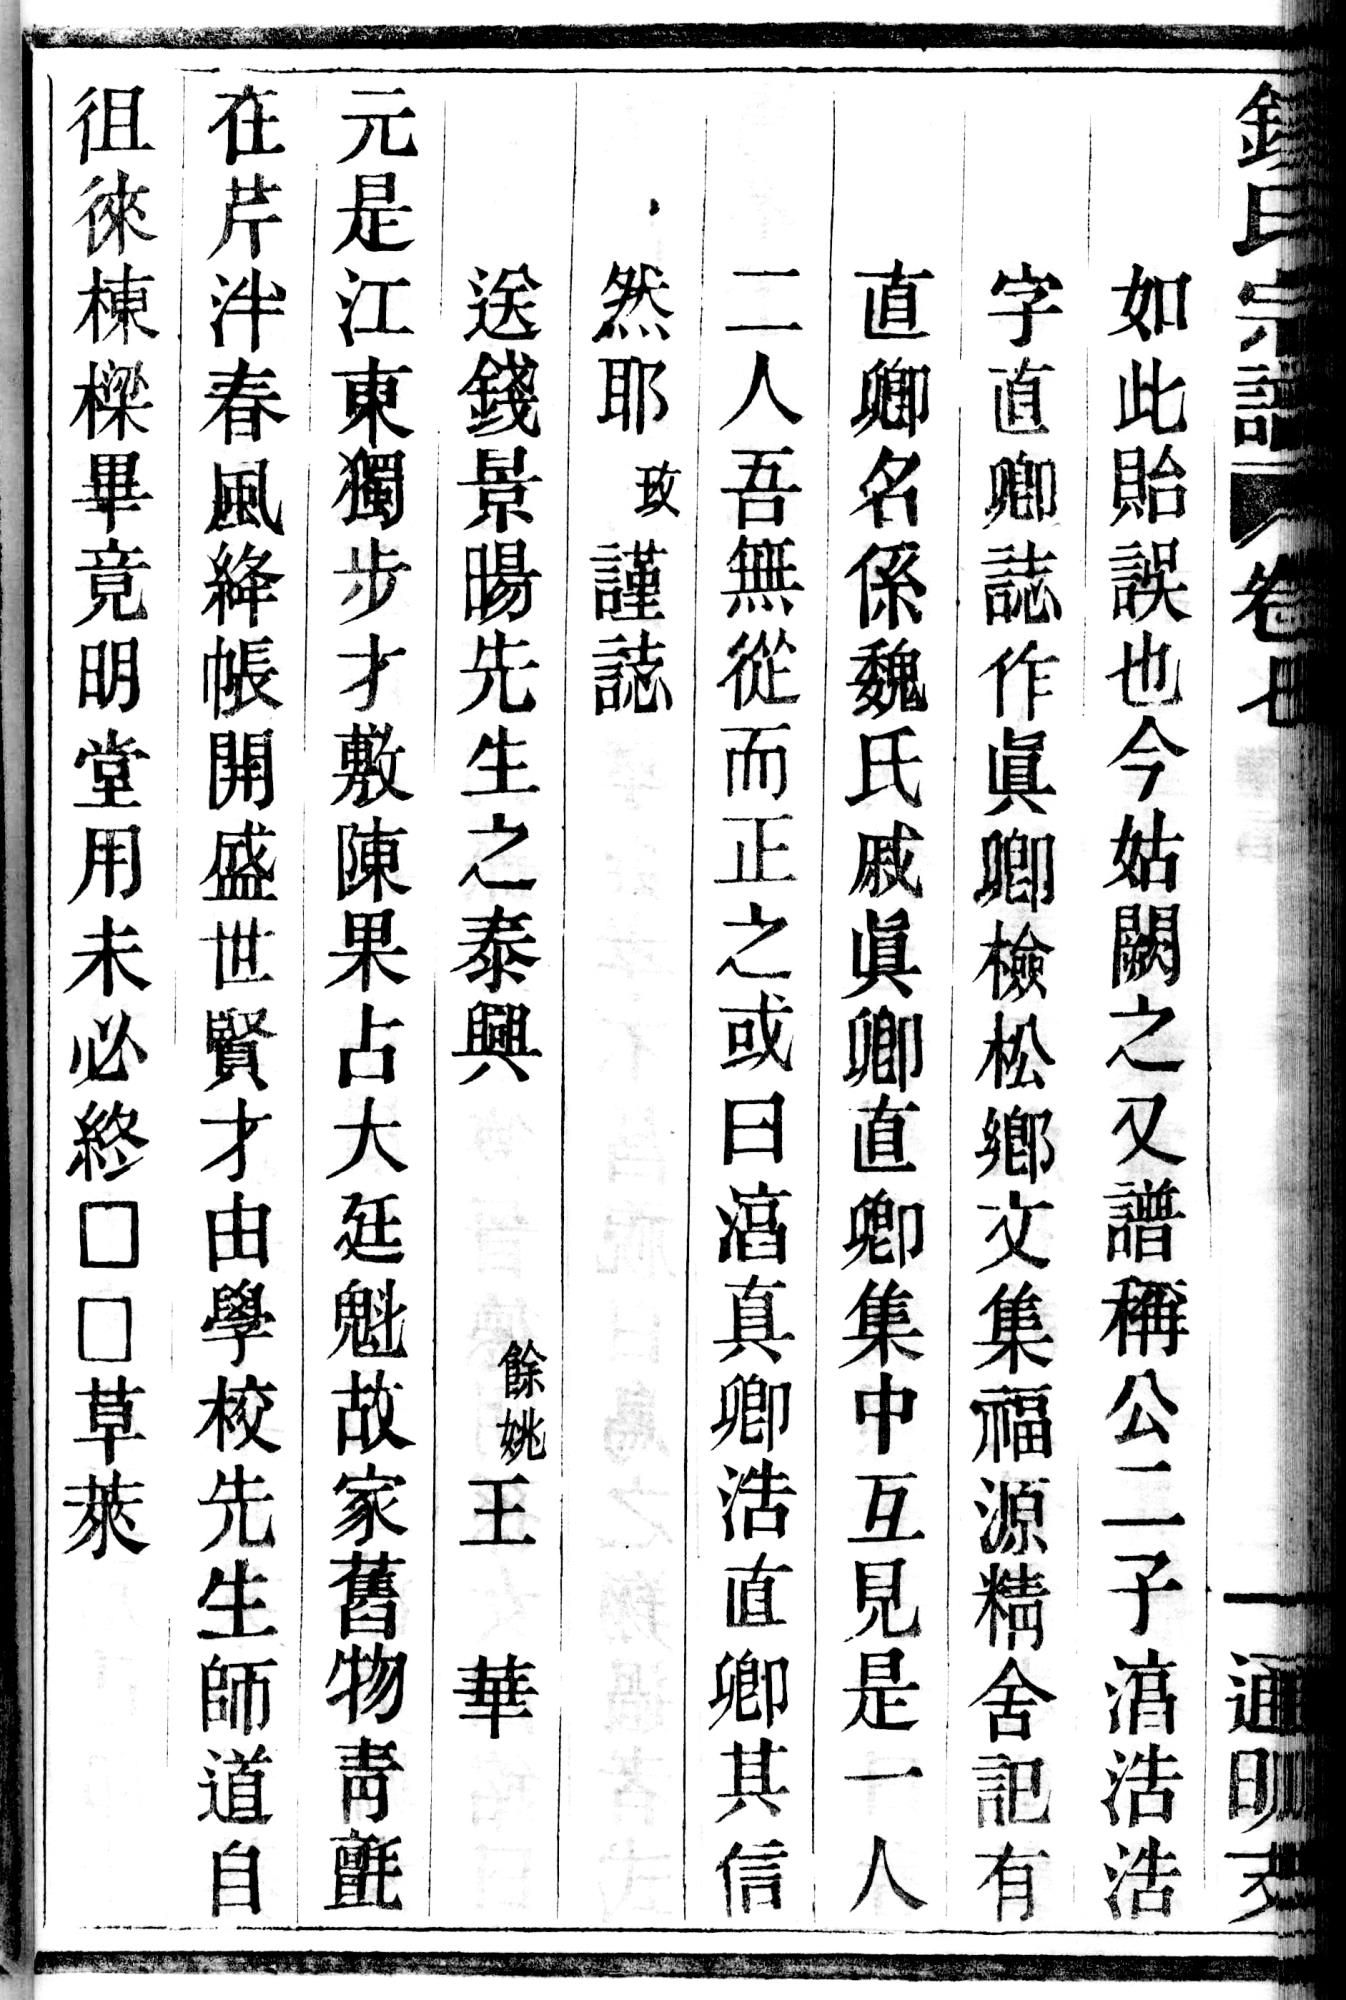 錢氏宗譜 卷七 一 通明支
如此貽誤也今姑闕之又譜稱公二子湻浩浩
字直卿誌作眞卿檢松鄉文集福源精舍記有
直卿名係魏氏戚眞卿直卿集中互見是一人
二人吾無從而正之或曰湻真卿浩直卿其信
然耶 玫 謹誌
送錢景暘先生之泰興 餘姚 王 華
元是江東獨步才敷陳果占大廷魁故家舊物靑氈
在芹泮春風絳帳開盛世賢才由學校先生師道自
徂徠棟樑畢竟明堂用未必終□□草萊